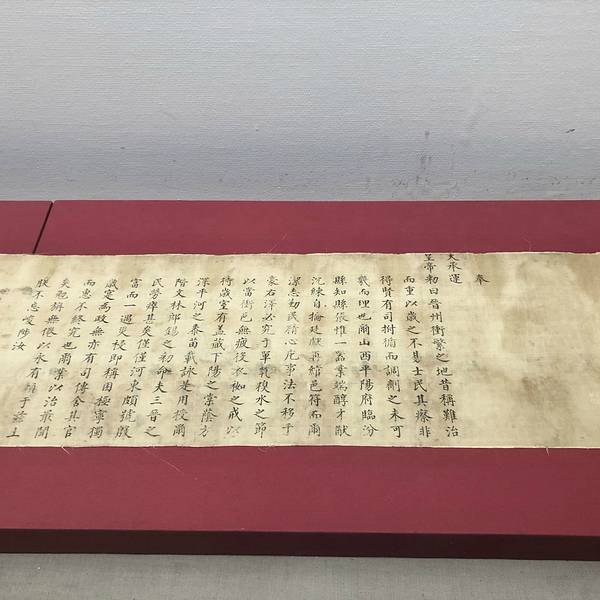 奉
天承運
皇帝勅曰晉州衝繁之地昔稱難治
而重以歲之不易士民其瘵非
得賢有司拊循而調劑之未可
襲而理也爾山西平陽府臨汾
縣知縣張惟一器業端醇才猷
沉練自掄廷獻再綰邑符而爾
潔志劬民精心庀事法不移乎
豪右澤必究于單煢稷水之節
以當衝邑無疲役之戒以
待歲室有蓋藏下陽之棠蔭方
深平河之黍苗載詠是用授爾
階文林郎錫之初命夫三晉之
民勞瘁甚矣僅僅河東頗號殷
富而一遇災祲即稱困極寧獨
歲寔為政無亦有司傳舍其官
而惠不終究也爾業以治最聞
矣勉旃無倦以永有于茲土
朕不忘愛陟汝